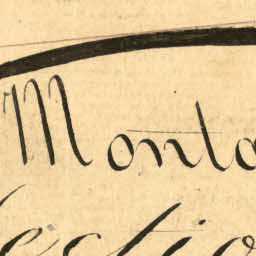 Monta
ectio